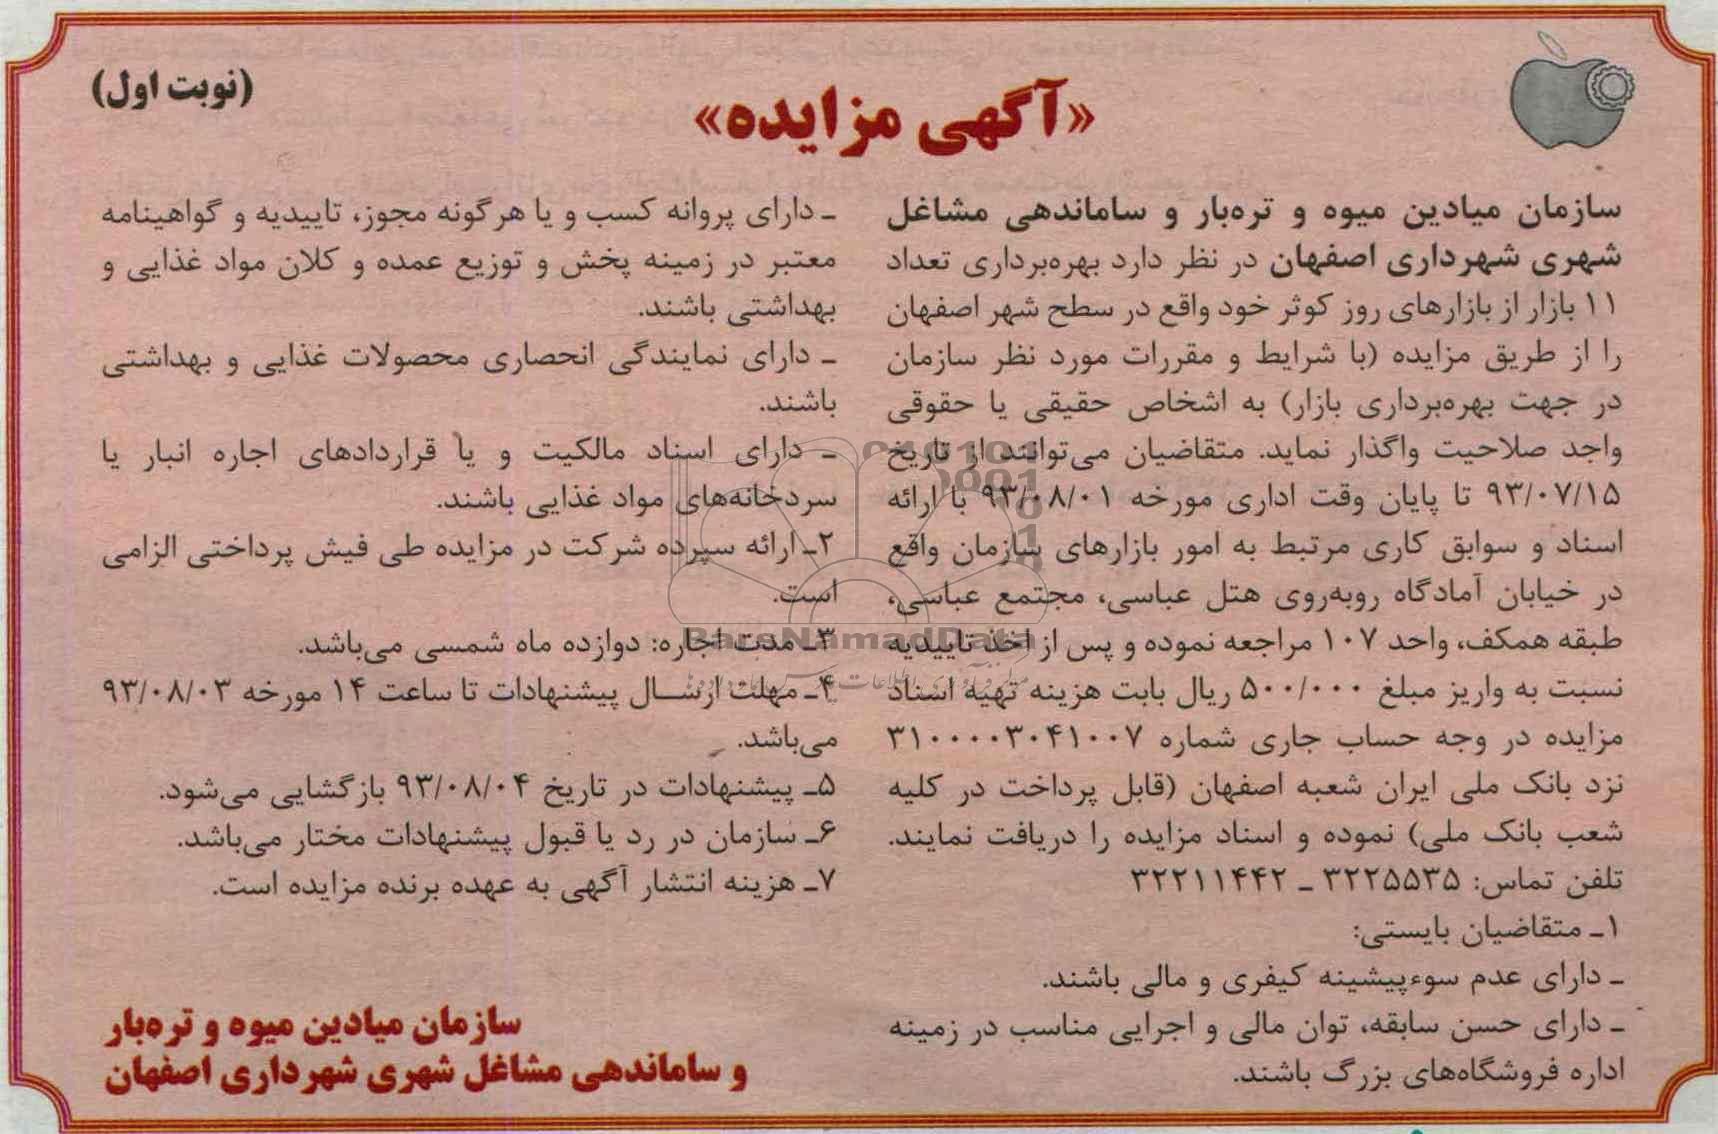 (نوبت اول)
«آگهی مزایده»
سازمان میادین میوه و تره‌بار و ساماندهی مشاغل
شهری شهرداری اصفهان در نظر دارد بهره‌برداری تعداد
۱۱ بازار از بازارهای روز کوثر خود واقع در سطح شهر اصفهان
را از طریق مزایده (با شرایط و مقررات مورد نظر سازمان
در جهت بهره‌برداری بازار) به اشخاص حقیقی یا حقوقی
واجد صلاحیت واگذار نماید. متقاضیان می‌توانند از تاریخ
۹۳/۰۷/۱۵ تا پایان وقت اداری مورخه ۹۳/۰۸/۰۱ با ارائه
اسناد و سوابق کاری مرتبط به امور بازارهای سازمان واقع
در خیابان آمادگاه روبه‌روی هتل عباسی، مجتمع عباسی،
طبقه همکف، واحد ۱۰۷ مراجعه نموده و پس از اخذ تاییدیه
نسبت به واریز مبلغ ۵۰۰/۰۰۰ ریال بابت هزینه تهیه اسناد
مزایده در وجه حساب جاری شماره ۳۱۰۰۰۰۳۰۴۱۰۰۷
نزد بانک ملی ایران شعبه اصفهان (قابل پرداخت در کلیه
شعب بانک ملی) نموده و اسناد مزایده را دریافت نمایند.
تلفن تماس: ۳۲۲۵۵۳۵ ـ ۳۲۲۱۱۴۴۲
۱ـ متقاضیان بایستی:
ـ دارای عدم سوءپیشینه کیفری و مالی باشند.
ـ دارای حسن سابقه، توان مالی و اجرایی مناسب در زمینه
اداره فروشگاه‌های بزرگ باشند.
ـ دارای پروانه کسب و یا هرگونه مجوز، تاییدیه و گواهینامه
معتبر در زمینه پخش و توزیع عمده و کلان مواد غذایی و
بهداشتی باشند.
ـ دارای نمایندگی انحصاری محصولات غذایی و بهداشتی
باشند.
ـ دارای اسناد مالکیت و یا قراردادهای اجاره انبار یا
سردخانه‌های مواد غذایی باشند.
۲ـ ارائه سپرده شرکت در مزایده طی فیش پرداختی الزامی
است.
۳ـ مدت اجاره: دوازده ماه شمسی می‌باشد.
۴ـ مهلت ارسال پیشنهادات تا ساعت ۱۴ مورخه ۹۳/۰۸/۰۳
می‌باشد.
۵ـ پیشنهادات در تاریخ ۹۳/۰۸/۰۴ بازگشایی می‌شود.
۶ـ سازمان در رد یا قبول پیشنهادات مختار می‌باشد.
۷ـ هزینه انتشار آگهی به عهده برنده مزایده است.
سازمان میادین میوه و تره‌بار
و ساماندهی مشاغل شهری شهرداری اصفهان
ParsNamadData